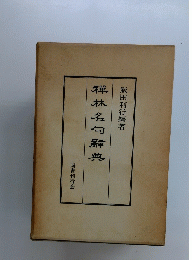 飯田利行編著
禅林名句辞典
国書刊行会